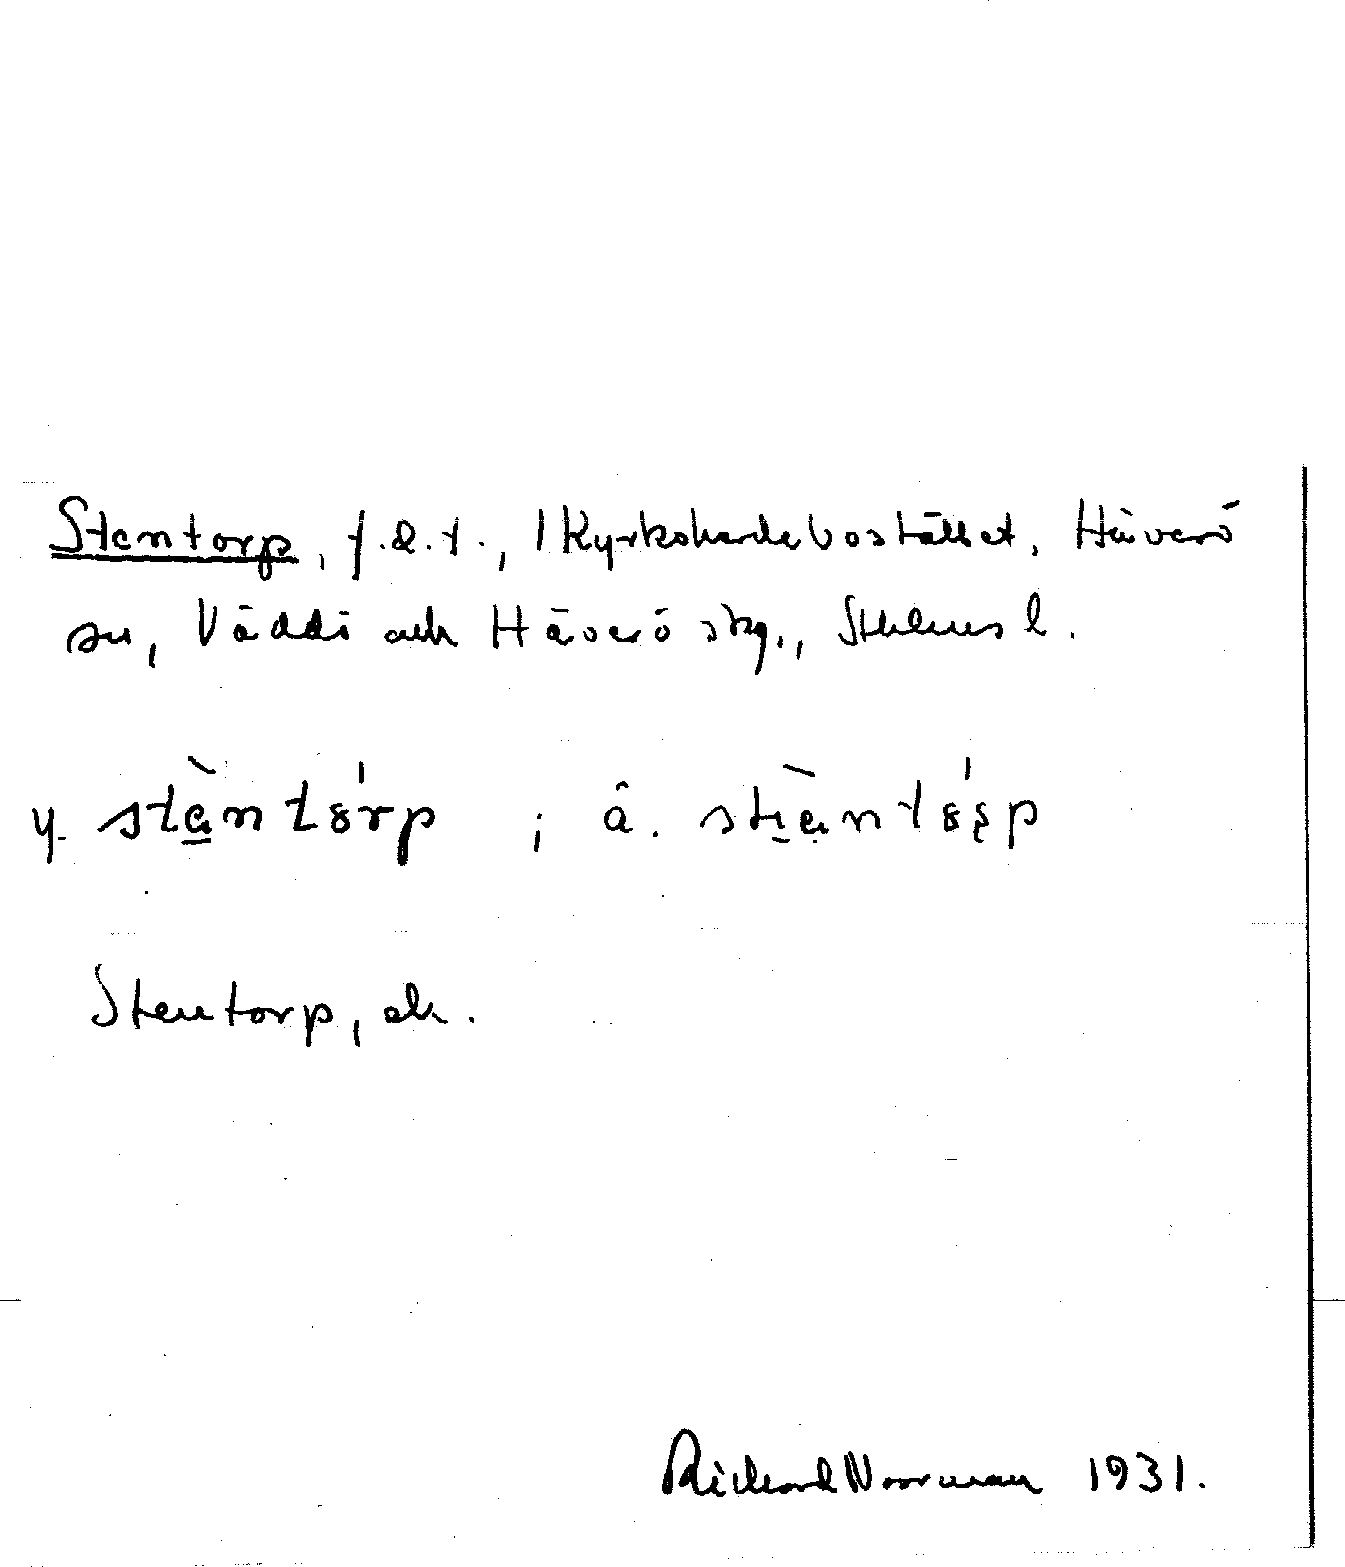 Stentorp, f.d.t., 1 Kyrkoherdebostället, Häverö
sn, Väddö och Häverö skg., Sthlms l.
y. stèntórp ; â.
Stentorp, ek.
Richard Noorman 1931.